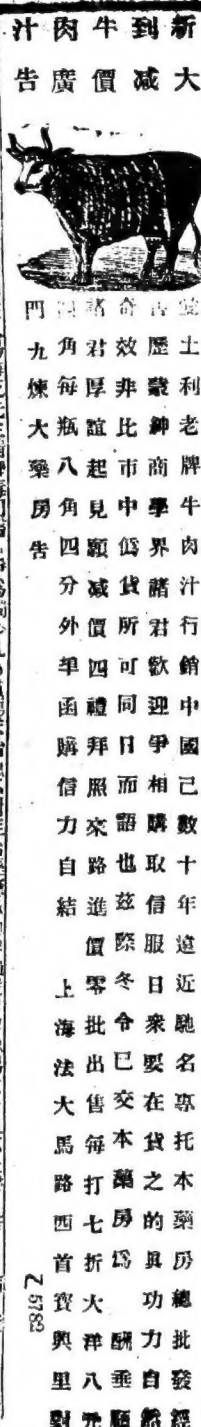 新到牛肉汁
大减價廣告
土利老牌牛肉汁行銷中國已數十年遠近馳名專托本藥房總批發經
歷蒙紳商學界諸君歡迎爭相購取信服日衆要在貨之的真功力自
奇效非比市中僞貨所可同日而語也茲際冬令已交本藥房爲酬垂顧
諸君厚誼起見願减價四禮拜照來路進價零批出售每打七折大洋八元
四角每瓶八角四分外埠函購信力自結 上海法大馬路西首寶興里對
門九煉大藥房告
Z5782